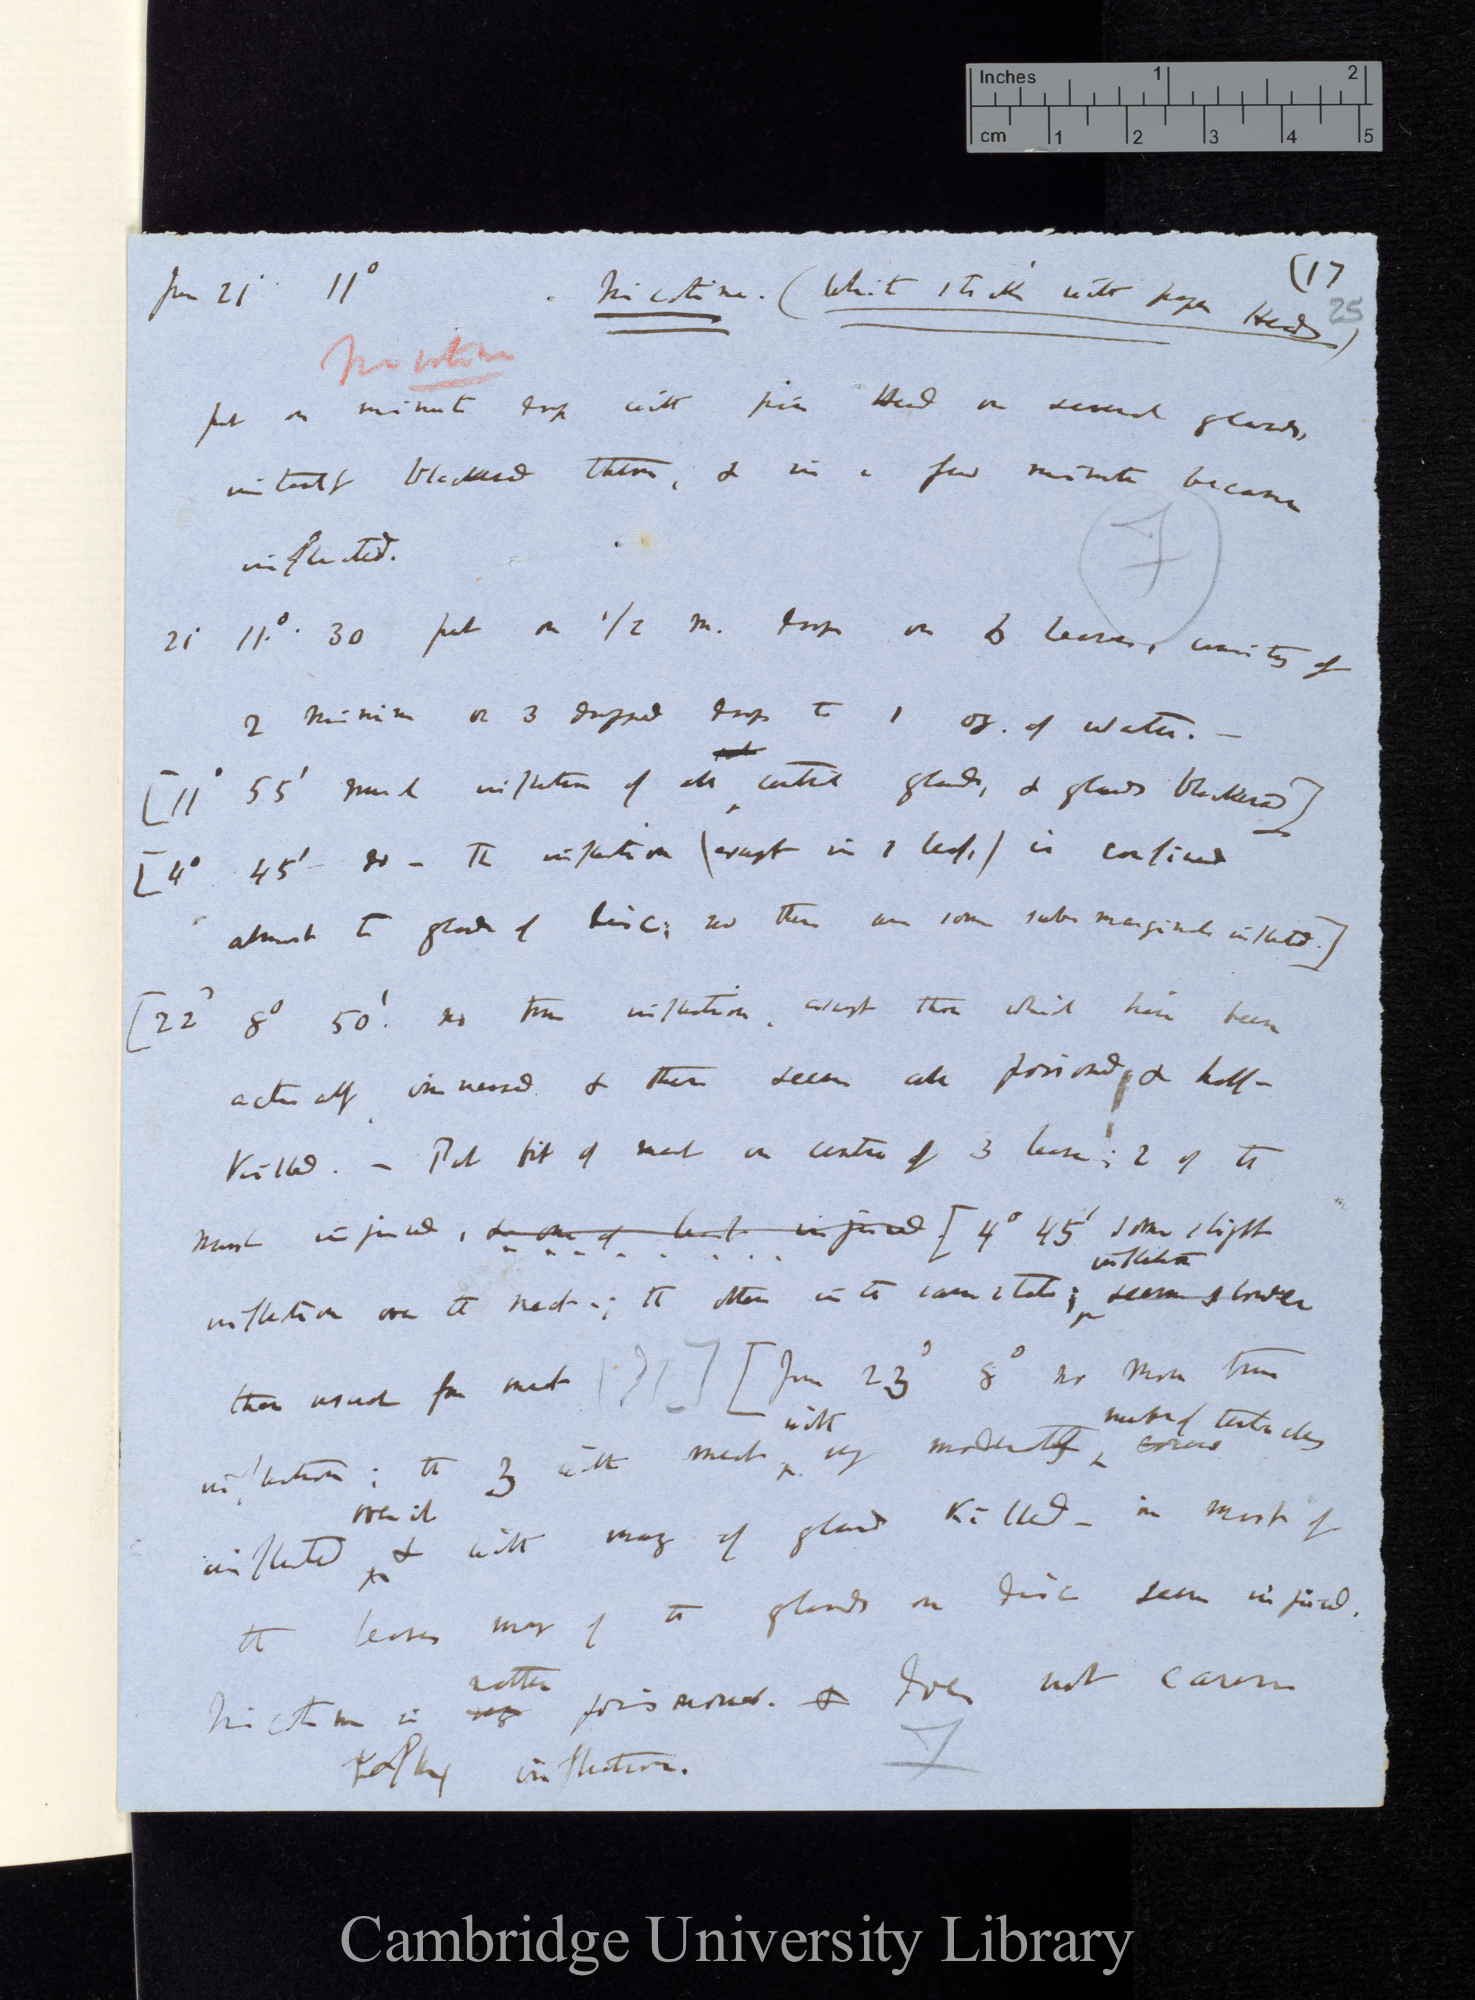 Inches 1 2
cm 1 2 3 4 5
(17
25
June 21' 11° Nicotine. (White stick with paper Heads)
Nicotine
put on minute drop with pin Head on several glands,
instantly blackened them, & in a few minutes became
inflected.
7
21' 11°. 30 put on 1/2 m. drops on 6 leaves, consisting of
2 minims or 3 dropped drops to 1 oz. of water. —
[11° 55' much inflection of all central glands, & glands blackened]
[4° 45' — so — The inflection (except in 1 leaf,) is confined
almost to glands of disc; so there are some sub-marginals inflected.]
[22' 8° 50'. no true inflection, except those which have been
actually immersed & these seem all poisoned, & half-
killed. — Put bit of meat on centre of 3 leaves; 2 of the
most injured, & one of least injured [4° 45' some slight
inflection
inflection over the meat; the other in the same state; seem slower
than usual for meat (3)] [June 23' 8° no more true
with number of tentacles
inflection; the 3 with meat very moderately
over it
inflected & with many of glands killed — in most of
the leaves many of the glands on disc seem injured.
rather
Nicotine is very poisonous. & does not cause
inflection.
7
Cambridge University Library